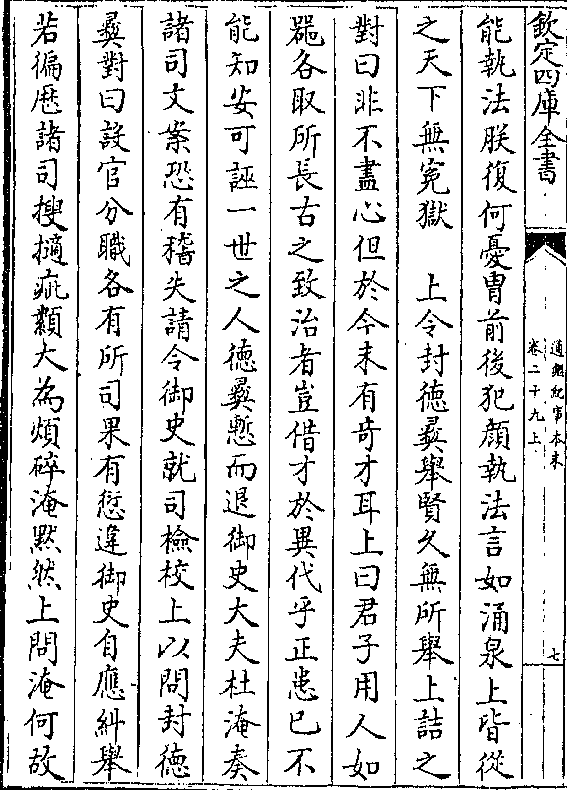 欽定四庫全書
通鑑紀事本末
卷二十九上
七
能執法朕復何憂胄前後犯顔執法言如涌泉上皆從
之天下無寃獄　上令封德彞舉賢久無所舉上詰之
對曰非不盡心但於今未有竒才耳上曰君子用人如
噐各取所長古之致治者豈借才於異代乎正患已不
能知安可誣一世之人德彞慙而退御史大夫杜淹奏
諸司文案恐有稽失請令御史就司檢校上以問封德
彞對曰設官分職各有所司果有愆違御史自應糾舉
若徧歴諸司搜擿疵纇大為煩碎淹黙然上問淹何故